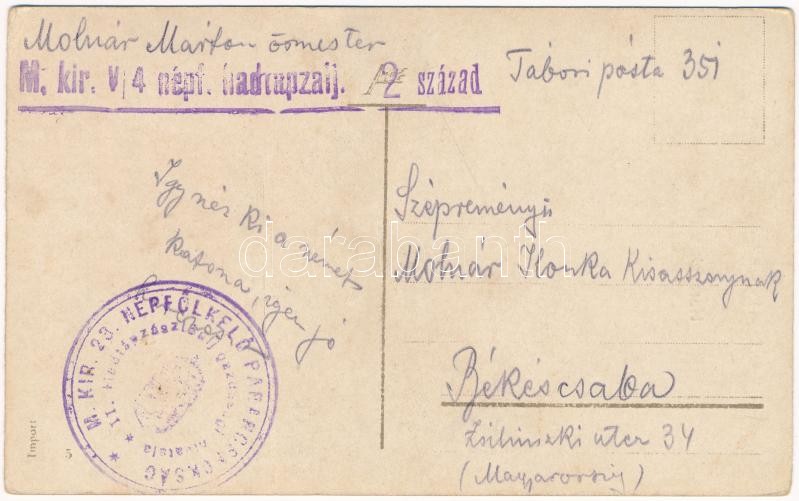 Molnár Márton őrmester
M. kir. V/4 népf. hadtápzalj. 2 század
Tábori pósta 351
Így néz ki a német
katona, igen jó
Szépreményű
Molnár Ilonka Kisasszonynak
Békéscsaba
Zsilinszki utca 34
(Magyarország)
M. KIR. 23. NÉPFÖLKELŐ PARANCSNOKSÁG
II. zászlóalj gazdasági hivatala
Import
5
darabanth